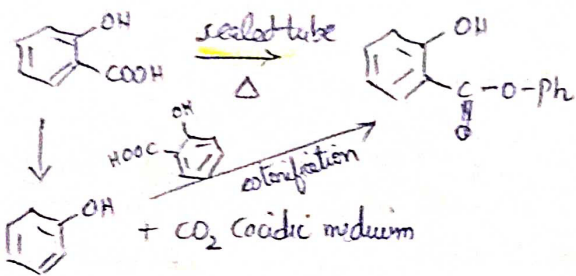 OH
COOH
sealed tube
Δ
OH
C-O-Ph
O
OH
HOOC
esterification
OH
+ CO2 Cacidic medium